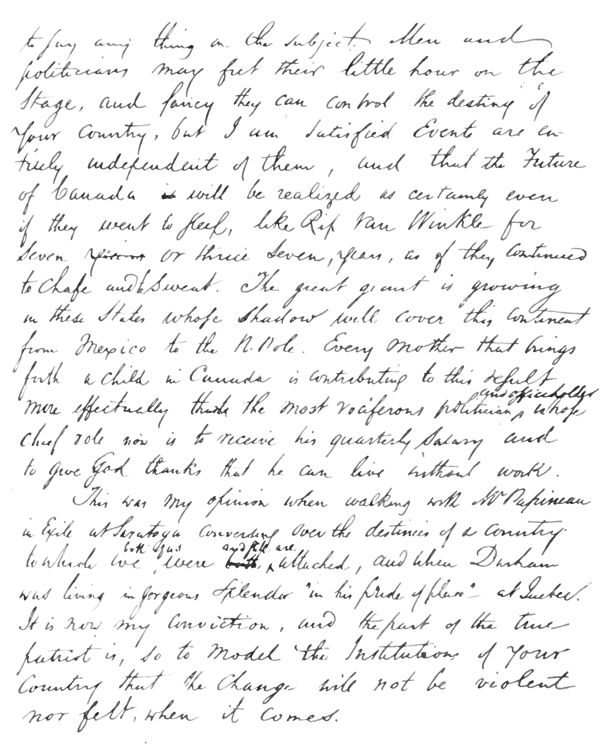 to say any thing on the subject. Men and
politicians may fret their little hour on the
Stage, and fancy they can control the destiny of
Your Country, but I am satisfied Events are en-
tirely independent of them, and that the Future
of Canada is will be realized as certainly even
if they went to sleep, like Rip Van Winkle for
Seven, or thrice Seven, years, as if they continued
to Chafe and Sweat. The great giant is growing
in these States whose Shadow will cover this Continent
from Mexico to the N. Pole. Every Mother that brings
forth a child in Canada is contributing to this result
more effectually than the most vociferous politician, and officeholder whose
chief role now is to receive his quarterly Salary and
to give God thanks that he can live without work.
This was my opinion when walking with Mr Papineau
in Exile at Saratoga conversing over the destinies of a country
to which we both of us were and still are attached, and when Durham
was living in gorgeous Splendor "in his pride of place" at Quebec.
It is now my Conviction, and the part of the true
patriot is, so to Model the Institutions of Your
Country that the Change will not be violent
nor felt, when it comes.